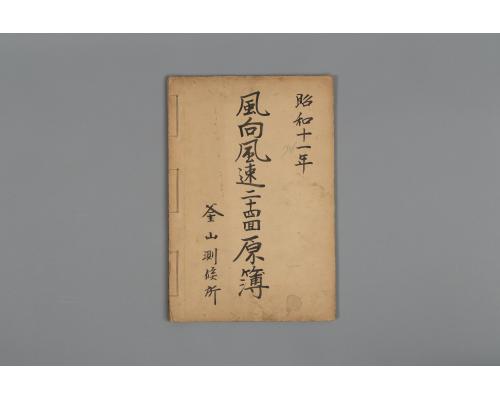 昭和十一年
風向風速二十四回原簿
釜山測候所